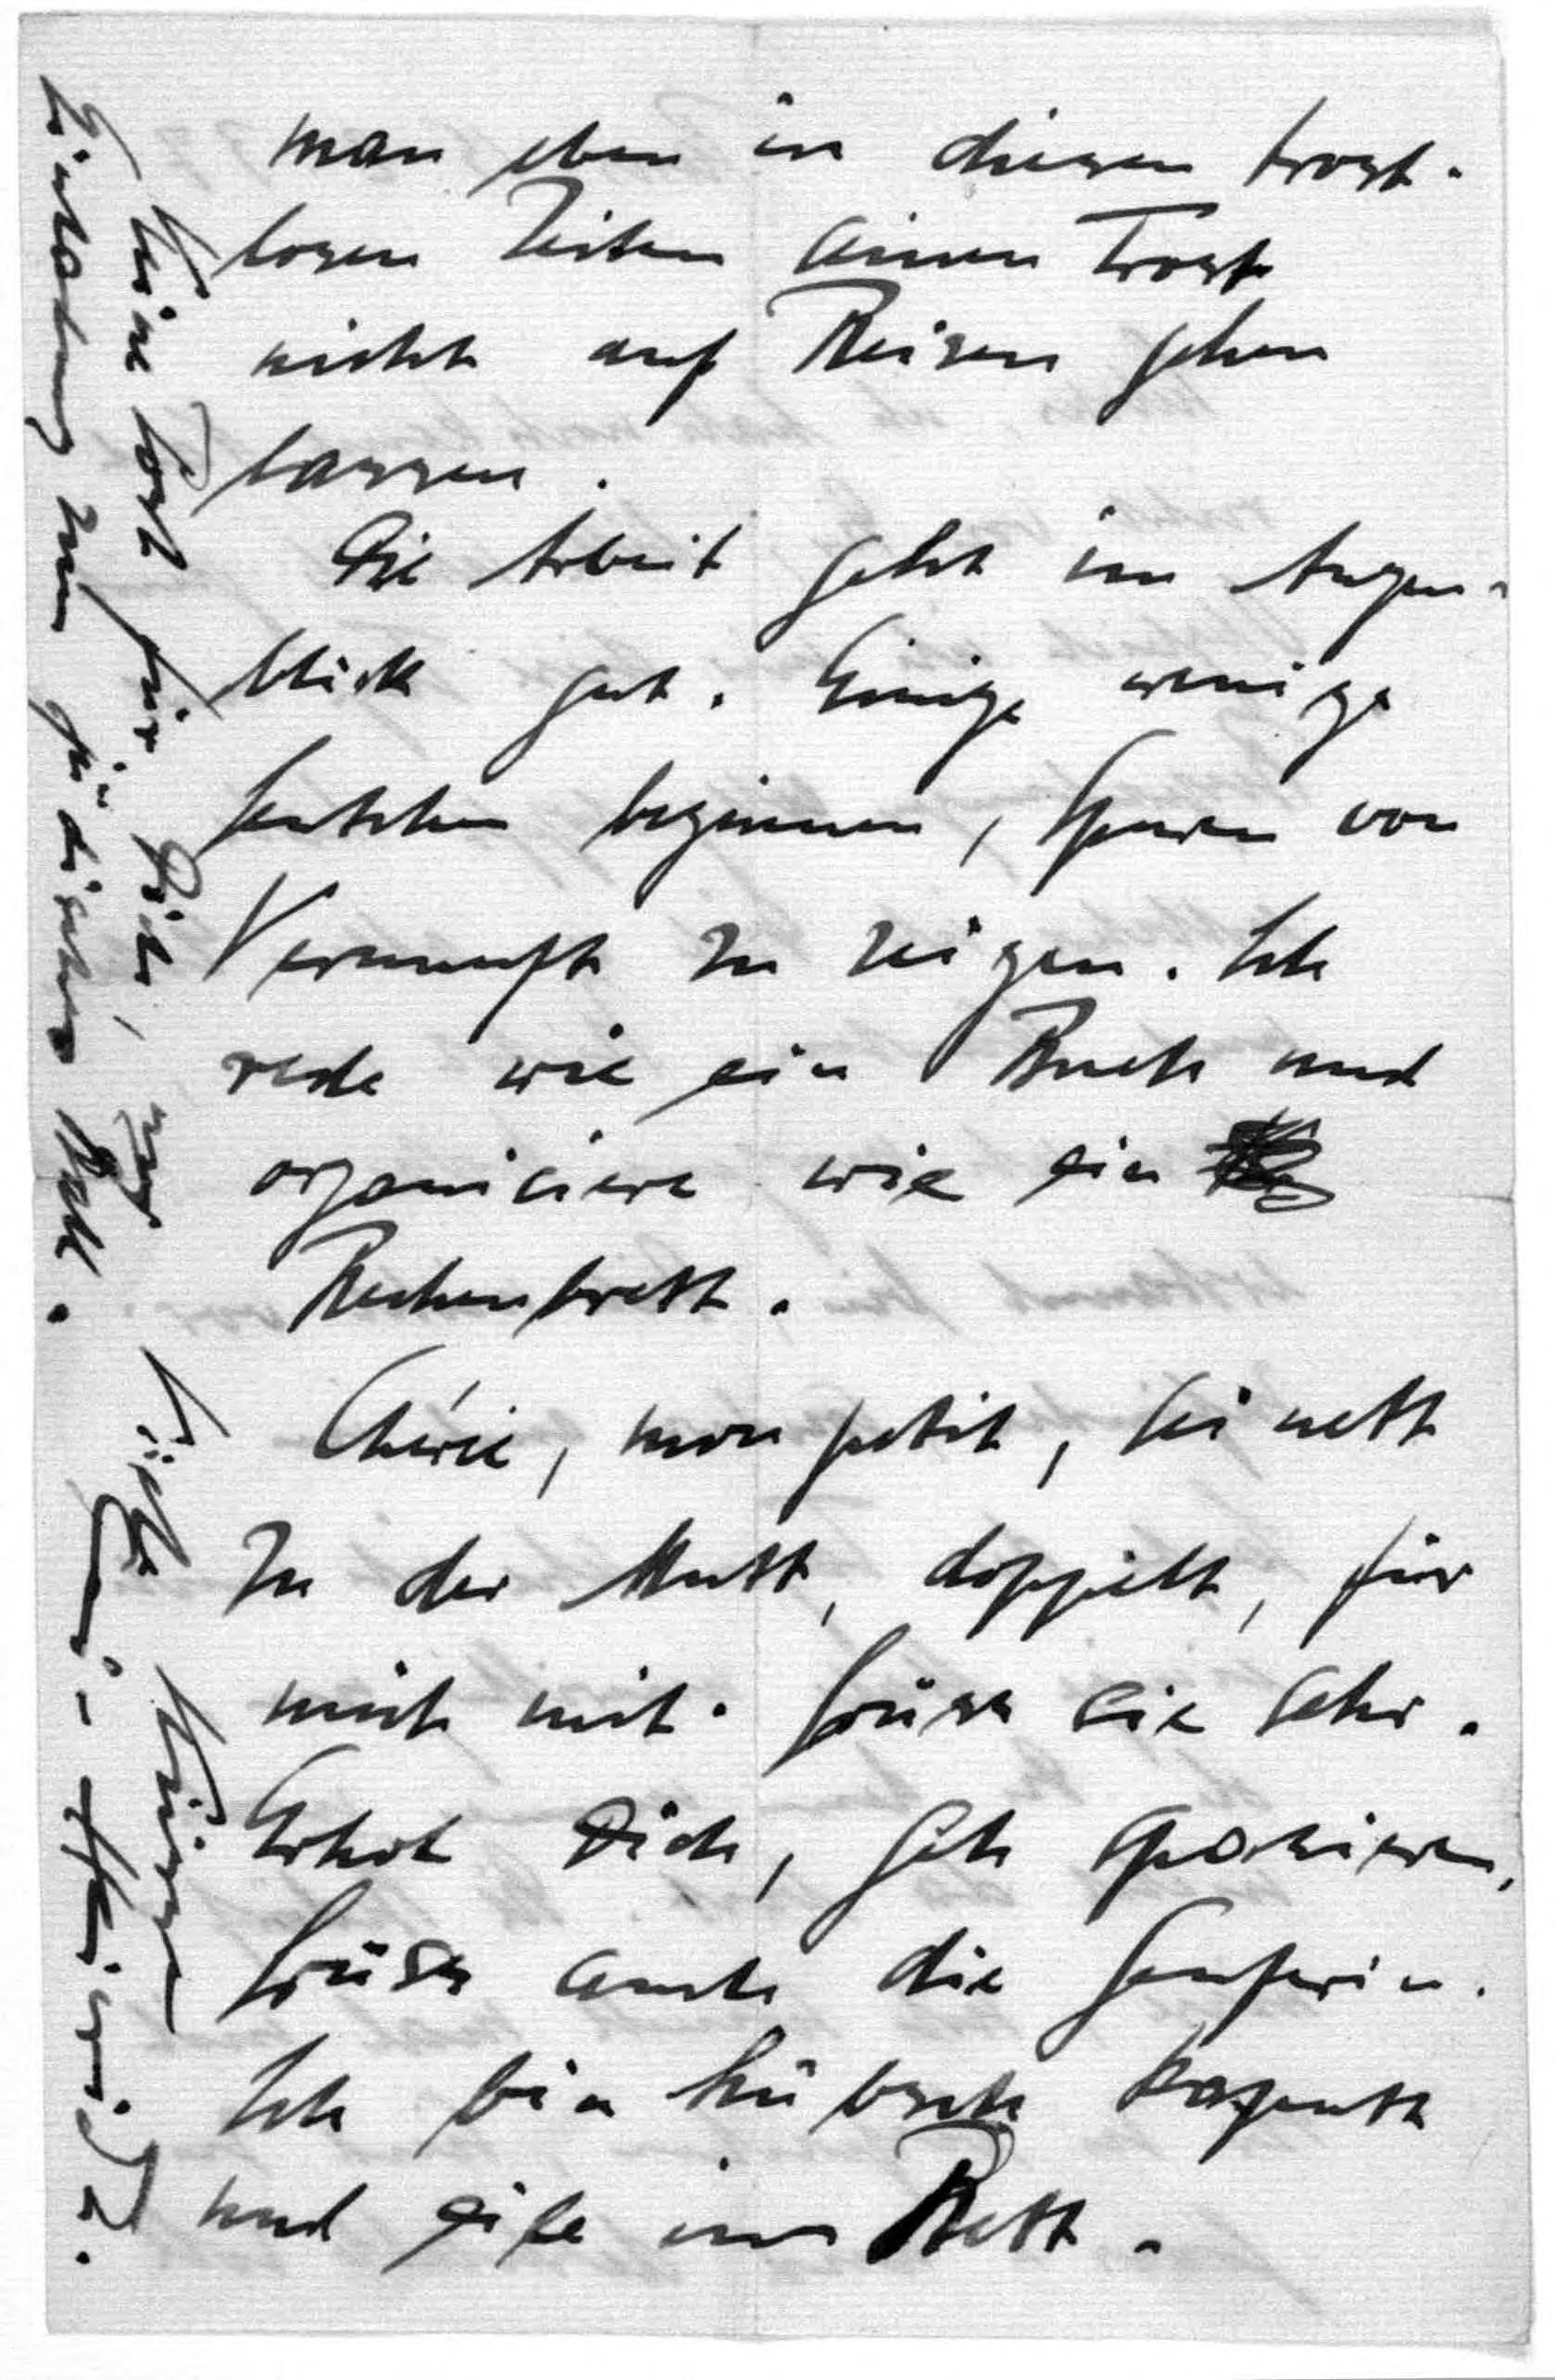 man eben in diesen trost-
losen Zeiten seinen Trost
nicht auf Reisen gehen
lassen.
Die Arbeit geht im Augen-
blick gut. Einige wenige
Leutchen beginnen, Spuren von
Vernunft zu zeigen. Ich
rede wie ein Buch und
organisiere wie ein
Rechenbrett.
Chérie, mon petit, sei nett
zu der Mutt, doppelt, für
mich mit. Grüss sie sehr.
Erhol Dich, geh spazieren,
Grüss auch die Genferin.
Ich bin hübsch kaputt
und eile ins Bett.
Keine Post für Dich, nur
Einladung zum jüdischen Ball.